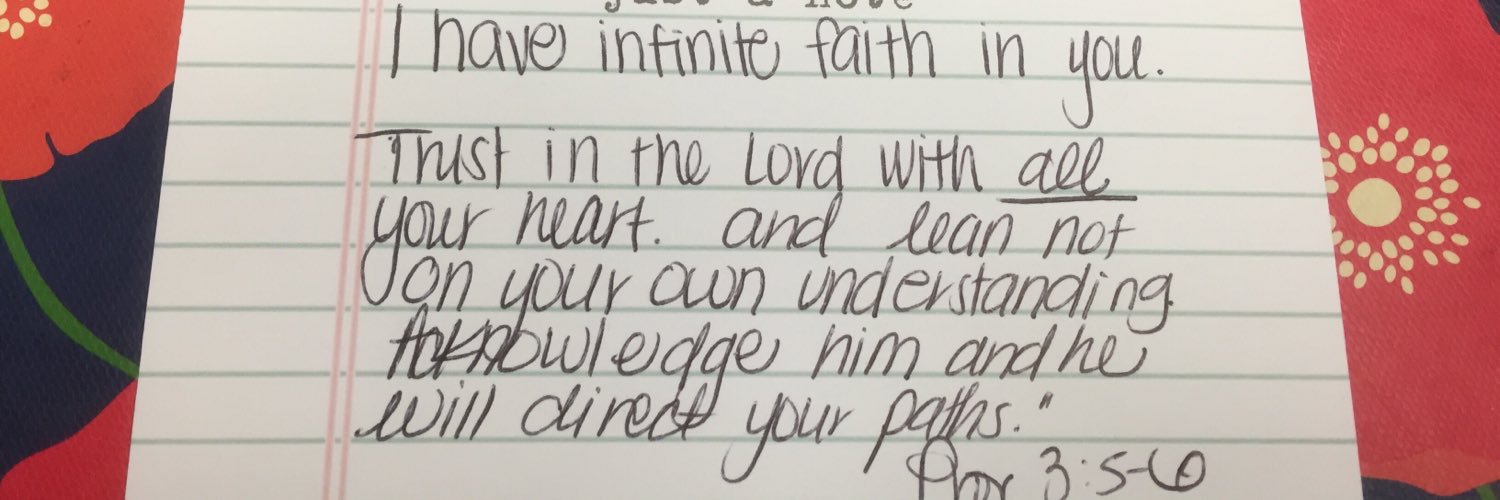 just a note
I have infinite faith in you.
Trust in the Lord with all
your heart. and lean not
on your own understanding.
Acknowledge him and he
will direct your paths."
Prov 3:5-6